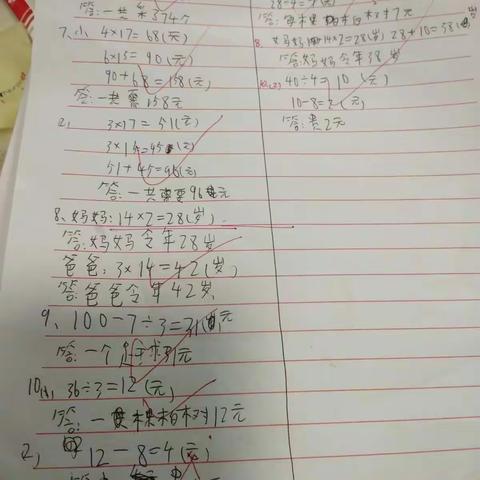 答:一共要374个
7、小 4×17=68(元)
6×15=90(元)
90+68=158(元)
答:一共要158元
2, 3×17=51(元)
3×15=45(元)
51+45=96(元)
答:一共要96元
8、妈妈:14×2=28(岁)
答:妈妈今年28岁
爸爸:3×14=42(岁)
答:爸爸今年42岁
9、100-7÷3=31(元
答:一个31元
10(1), 36÷3=12(元)
答:一棵柏树12元
2, 12-8=4(元)
28÷4=7(元)
答:每棵柏树7元
8、妈妈14×2=28(岁) 28+10=38(岁)
答:妈妈今年38岁
10.(2) 40÷4=10(元)
10-8=2(元)
答:贵2元